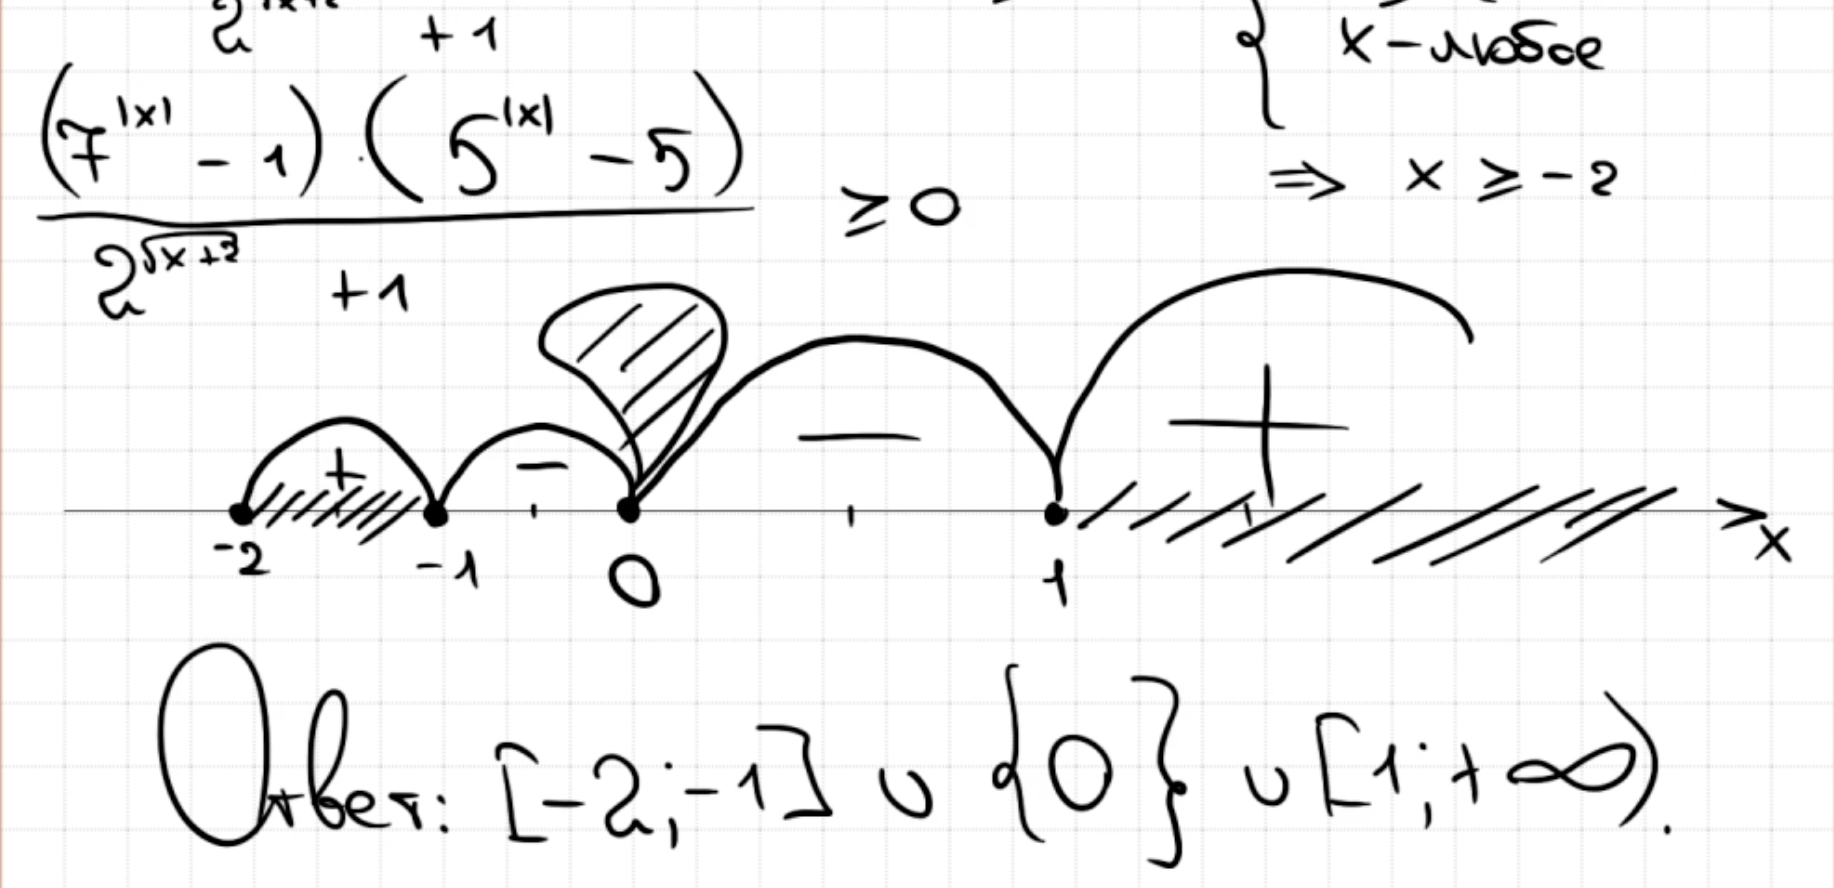 + 1
x - любое
(7^|x| - 1) · (5^|x| - 5)
≥ 0
2^√(x+2) + 1
⇒ x ≥ -2
+ - - +
-2 -1 0 1 x
Ответ: [-2; -1] ∪ {0} ∪ [1; +∞).